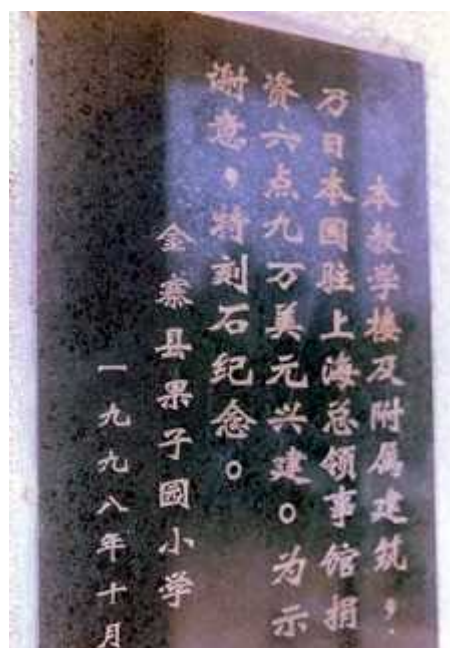 本教学楼及附属建筑，
乃日本国驻上海总领事馆捐
资六点九万美元兴建。为示
谢意，特刻石纪念。
金寨县果子园小学
一九九八年十月